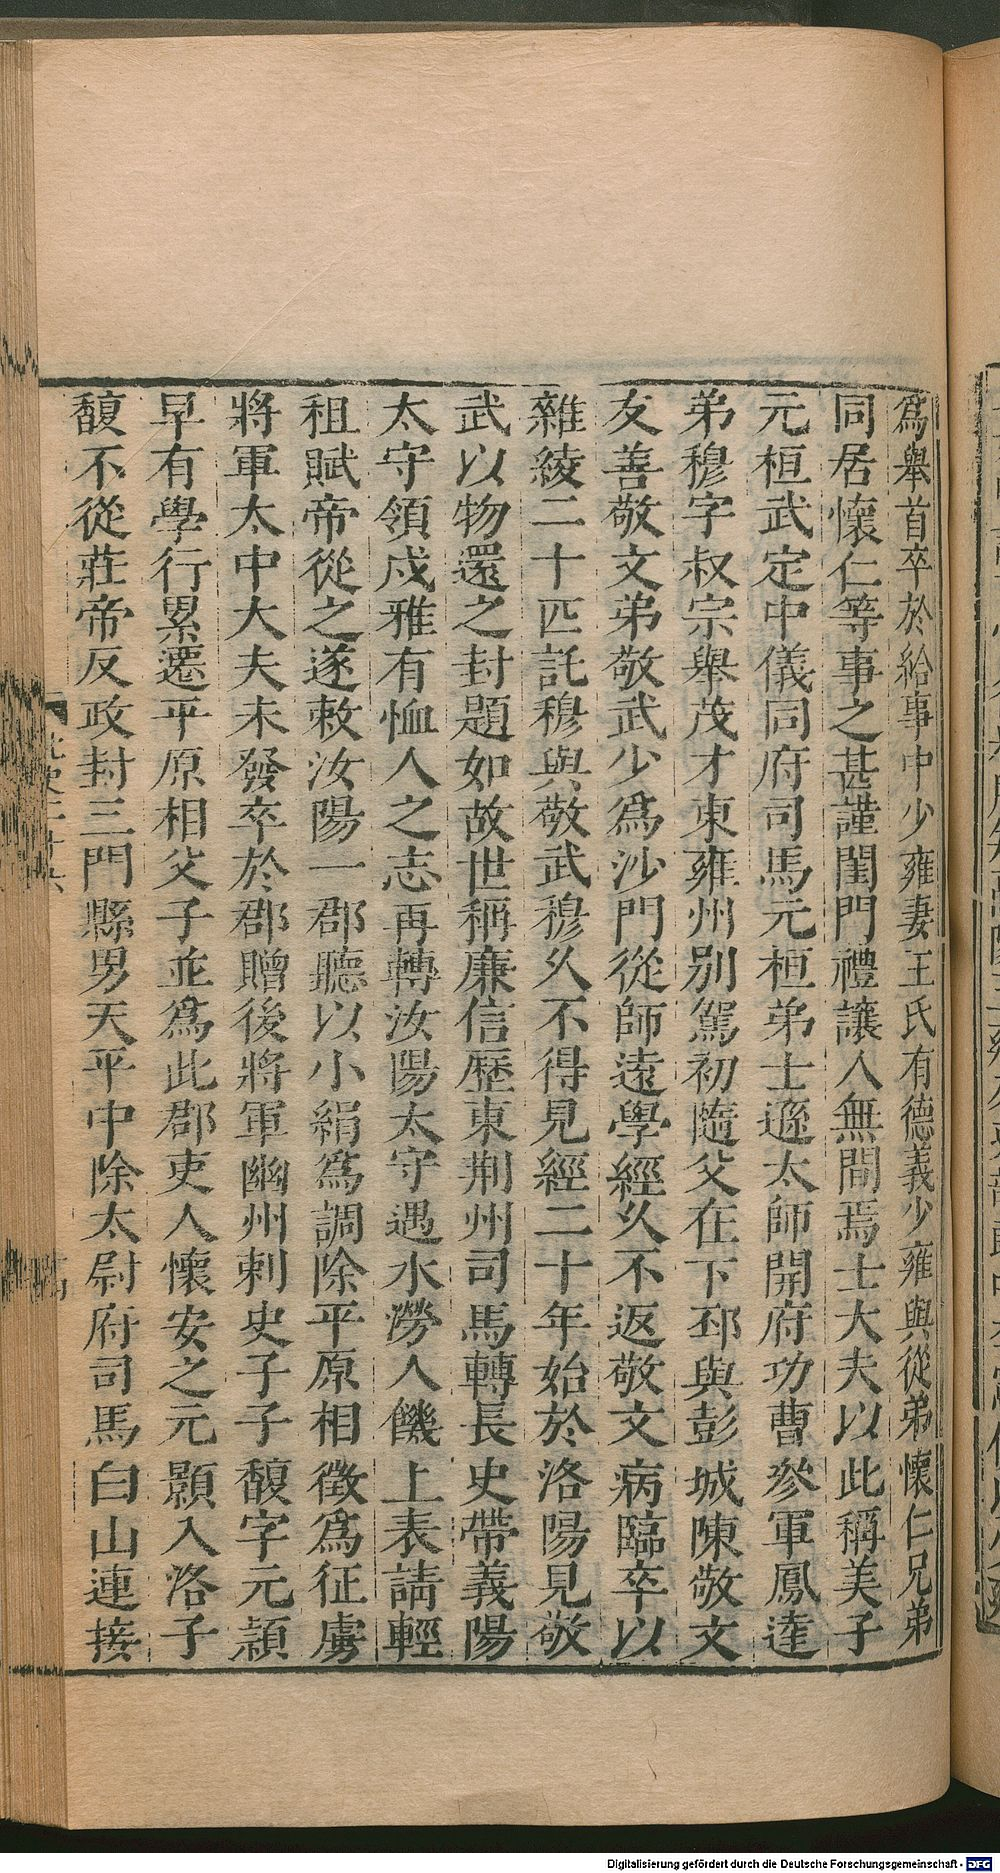 爲舉首卒於給事中少雍妻王氏有德義少雍與從弟懷仁兄弟
同居懷仁等事之甚謹閨門禮讓人無間焉士大夫以此稱美子
元桓武定中儀同府司馬元桓弟士遜太師開府功曹參軍鳳達
弟穆字叔宗舉茂才東雍州别駕初隨父在下邳與彭城陳敬文
友善敬文弟敬武少爲沙門從師遠學經久不返敬文病臨卒以
雜綾二十匹託穆與敬武穆久不得見經二十年始於洛陽見敬
武以物還之封題如故世稱廉信歷東荆州司馬轉長史帶義陽
太守領戍雅有恤人之志再轉汝陽太守遇水澇人饑上表請輕
租賦帝從之遂敕汝陽一郡聽以小絹爲調除平原相徵爲征虜
將軍太中大夫未發卒於郡贈後將軍幽州刺史子子馥字元頴
早有學行累遷平原相父子並爲此郡吏人懷安之元顥入洛子
馥不從莊帝反政封三門縣男天平中除太尉府司馬白山連接
Digitalisierung gefördert durch die Deutsche Forschungsgemeinschaft - DFG